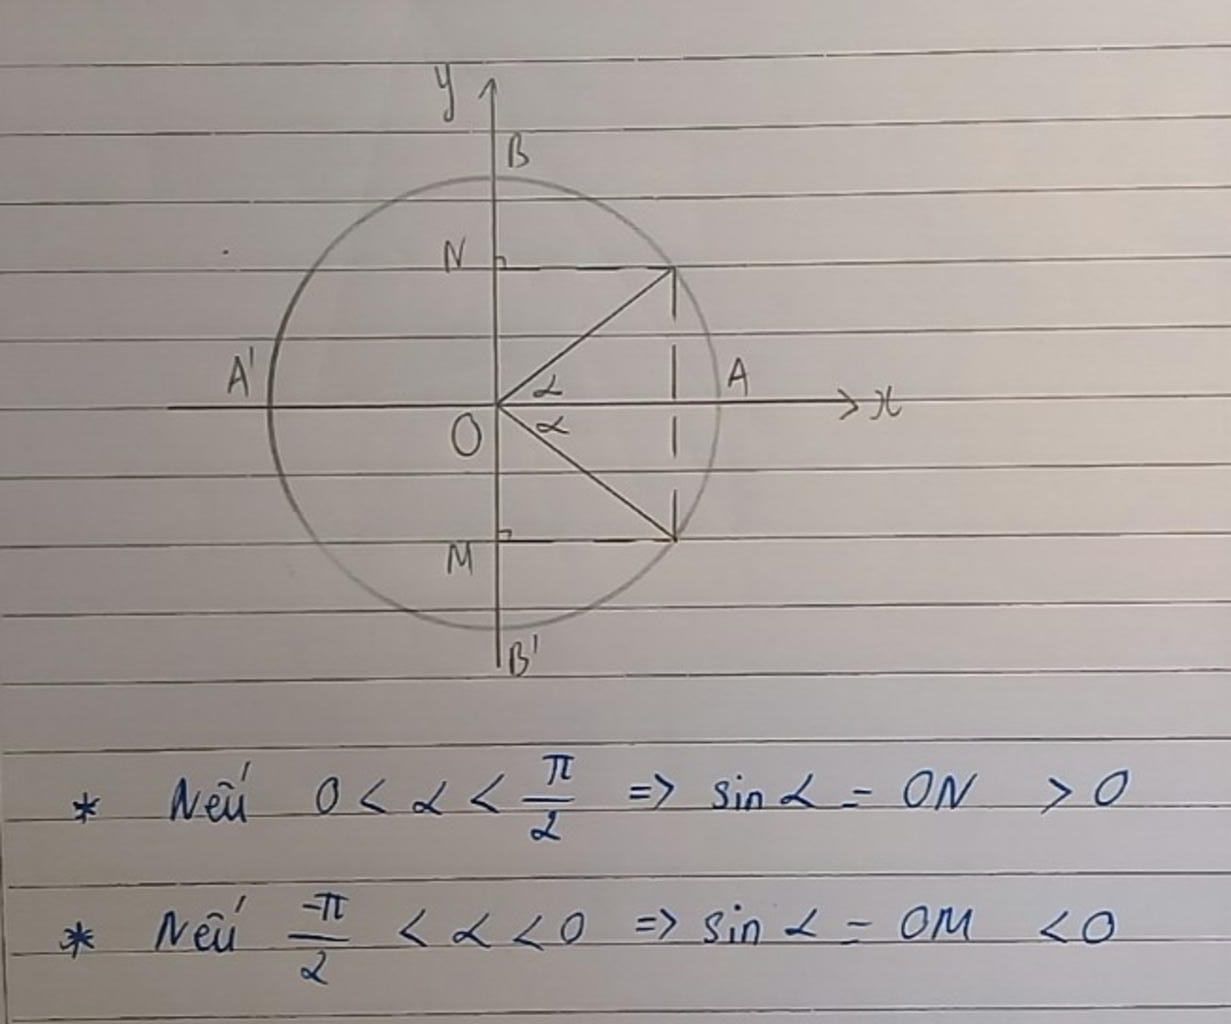 y
B
N
A' α A
O α x
M
B'
* Nếu 0 < α < π/2 => sin α = ON > 0
* Nếu -π/2 < α < 0 => sin α = OM < 0